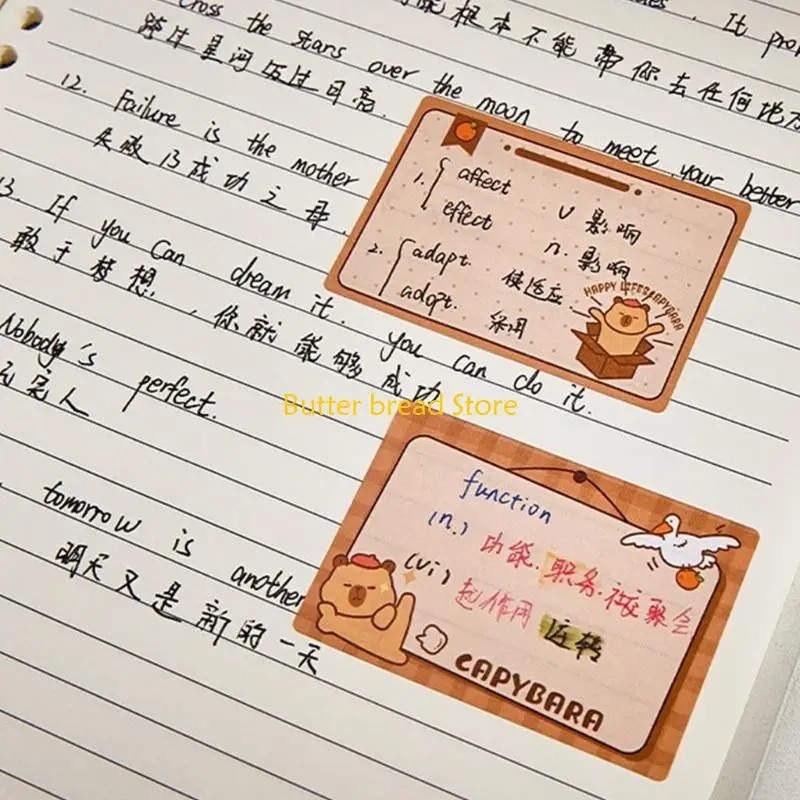 It
能根本不能带你去任何地方
cross the stars over the moon to meet your better
跨过星河迈过月亮.
12. Failure is the mother
失败乃成功之母.
13. If you can dream it. you can do it.
敢于梦想.,你就能够成功
Nobody's perfect.
无完人
tomorrow is another
明天又是新的一天
1. affect v 影响
effect n. 影响
2. adapt. 使适应
adopt. 采用
HAPPY LIFE&CAPYBARA
Butter bread Store
function
(n.) 功能.职务.社交聚会
(vi) 起作用 运转
CAPYBARA